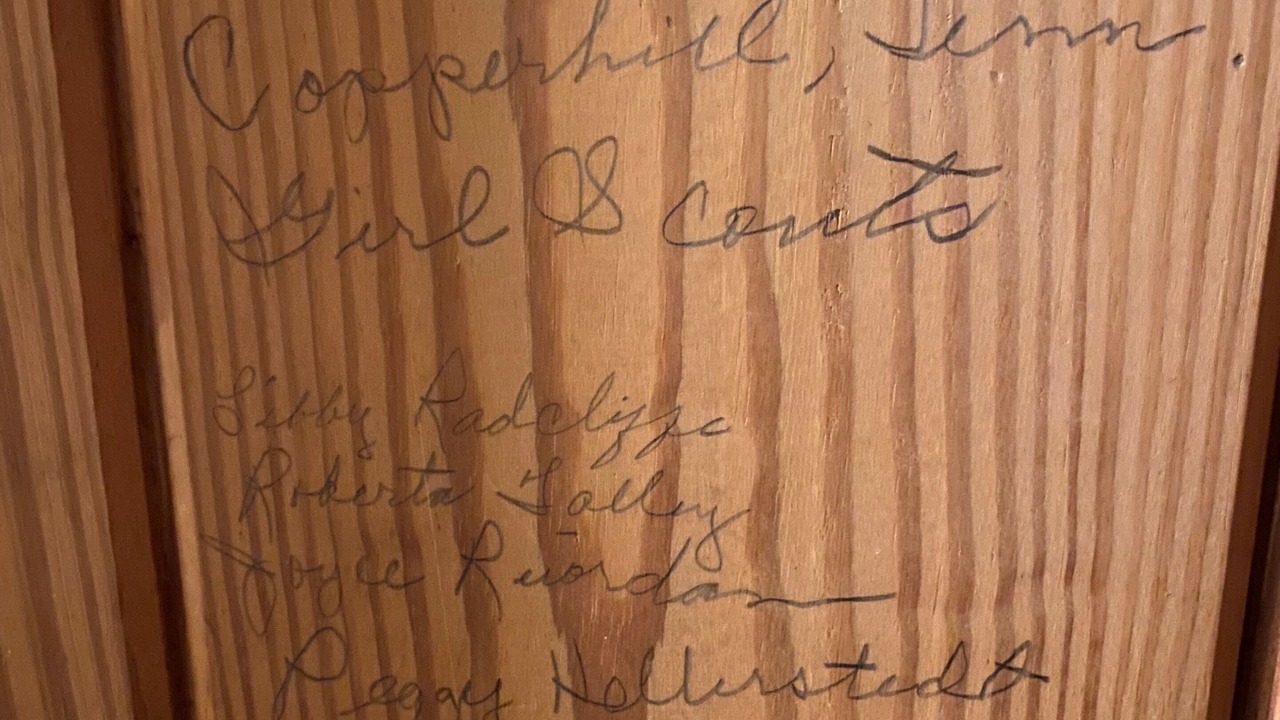 Copperhill, Tenn.
Girl Scouts
Libby Radclyffe
Roberta Talley
Joyce Riordan
Peggy Hollerstedt